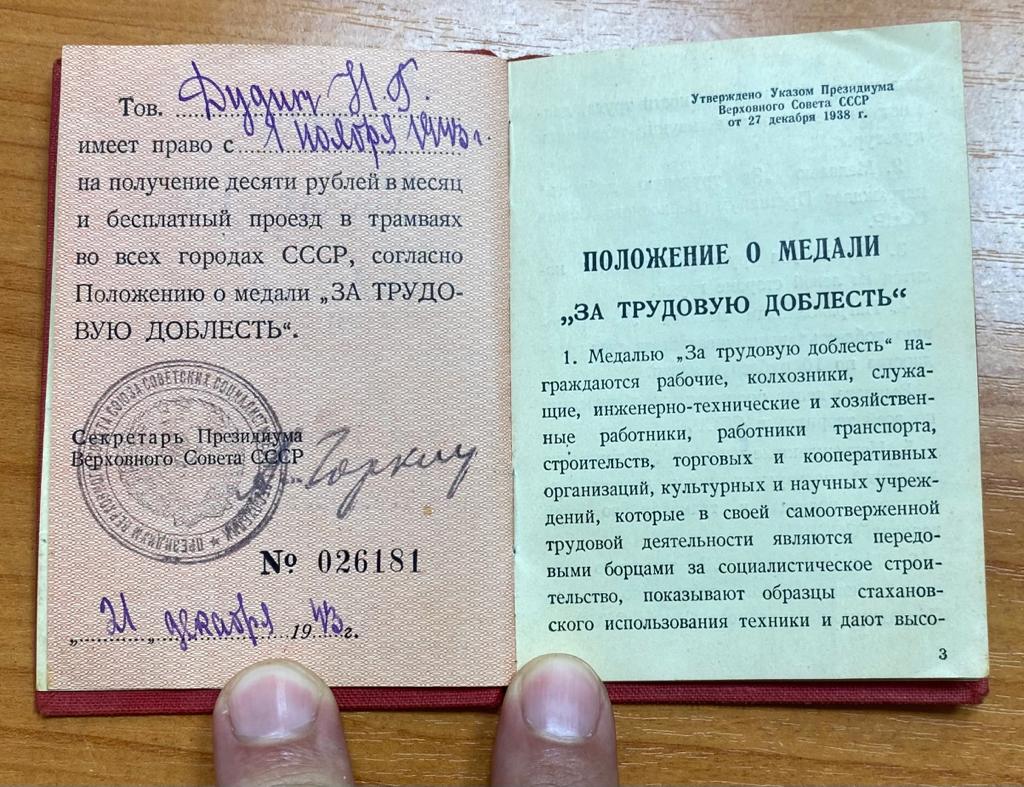 Тов. Дудин Н. Г.
имеет право с 1 ноября 1943 г.
на получение десяти рублей в месяц
и бесплатный проезд в трамваях
во всех городах СССР, согласно
Положению о медали „ЗА ТРУДО-
ВУЮ ДОБЛЕСТЬ“.
Секретарь Президиума
Верховного Совета СССР
Горкин
№ 026181
„21„ декабря 1943 г.
Утверждено Указом Президиума
Верховного Совета СССР
от 27 декабря 1938 г.
ПОЛОЖЕНИЕ О МЕДАЛИ
„ЗА ТРУДОВУЮ ДОБЛЕСТЬ“
1. Медалью „За трудовую доблесть“ на-
граждаются рабочие, колхозники, служа-
щие, инженерно-технические и хозяйствен-
ные работники, работники транспорта,
строительств, торговых и кооперативных
организаций, культурных и научных учреж-
дений, которые в своей самоотверженной
трудовой деятельности являются передо-
выми борцами за социалистическое строи-
тельство, показывают образцы стаханов-
ского использования техники и дают высо-
3